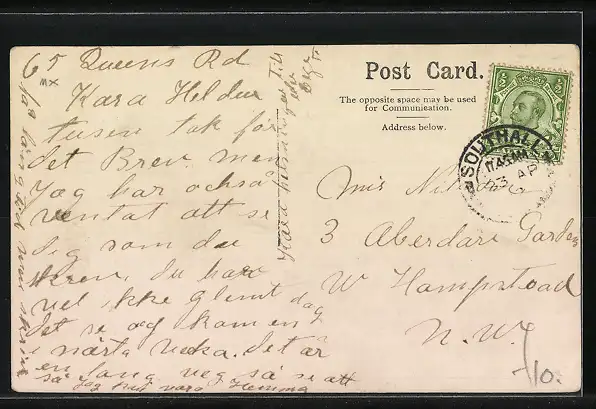 65 Queens Rd
Kära Heldur
tusen tak för
det Brev men
Jag har också
ventat att se
dig som du
skrev, du har
vel ikke glemt dag
det se og kom en
i närta vecka. det är
en lang veg så se att
så Jag hut vara Hemma
Kära
Post Card.
The opposite space may be used
for Communication.
Address below.
½
SOUTHALL
11.45 AM
3 AP
Mis
3 Aberdare Gardens
W Hampstead
N.W.
10.